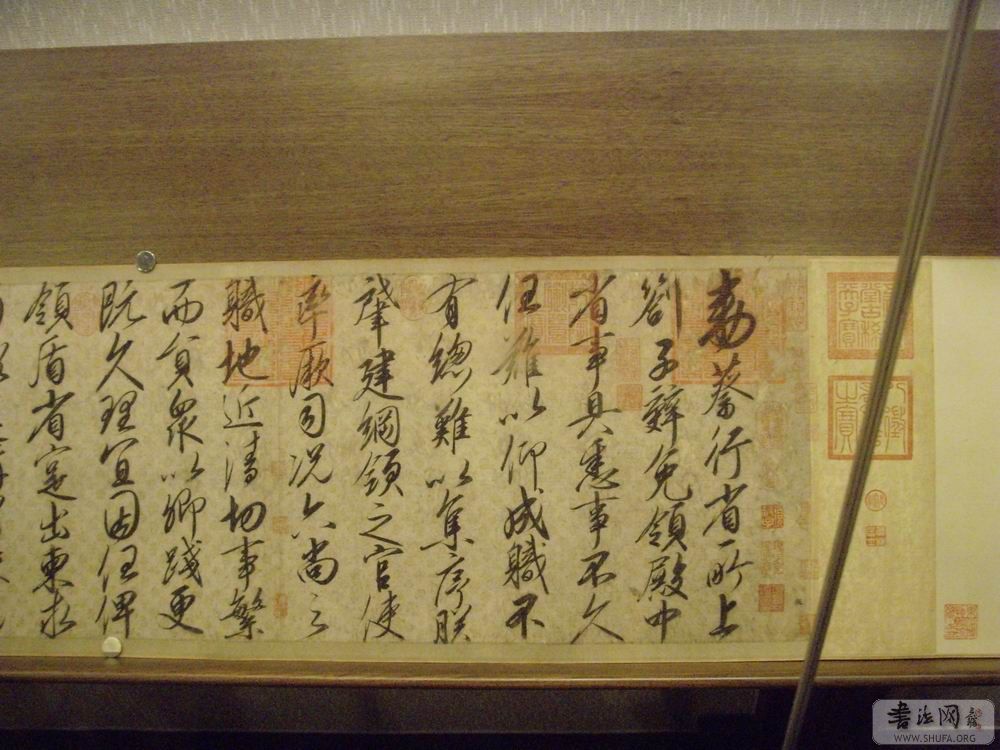 敕蔡行省所上
劄子辭免領殿中
省事具悉事不久
任難以仰成職不
有總難以集序朕
肇建綱領之官使
率厥司況六尚之
職地近清切事繁
而員衆以卿踐更
既久理宜因任俾
領盾省寔出柬求
书法网
WWW.SHUFA.ORG